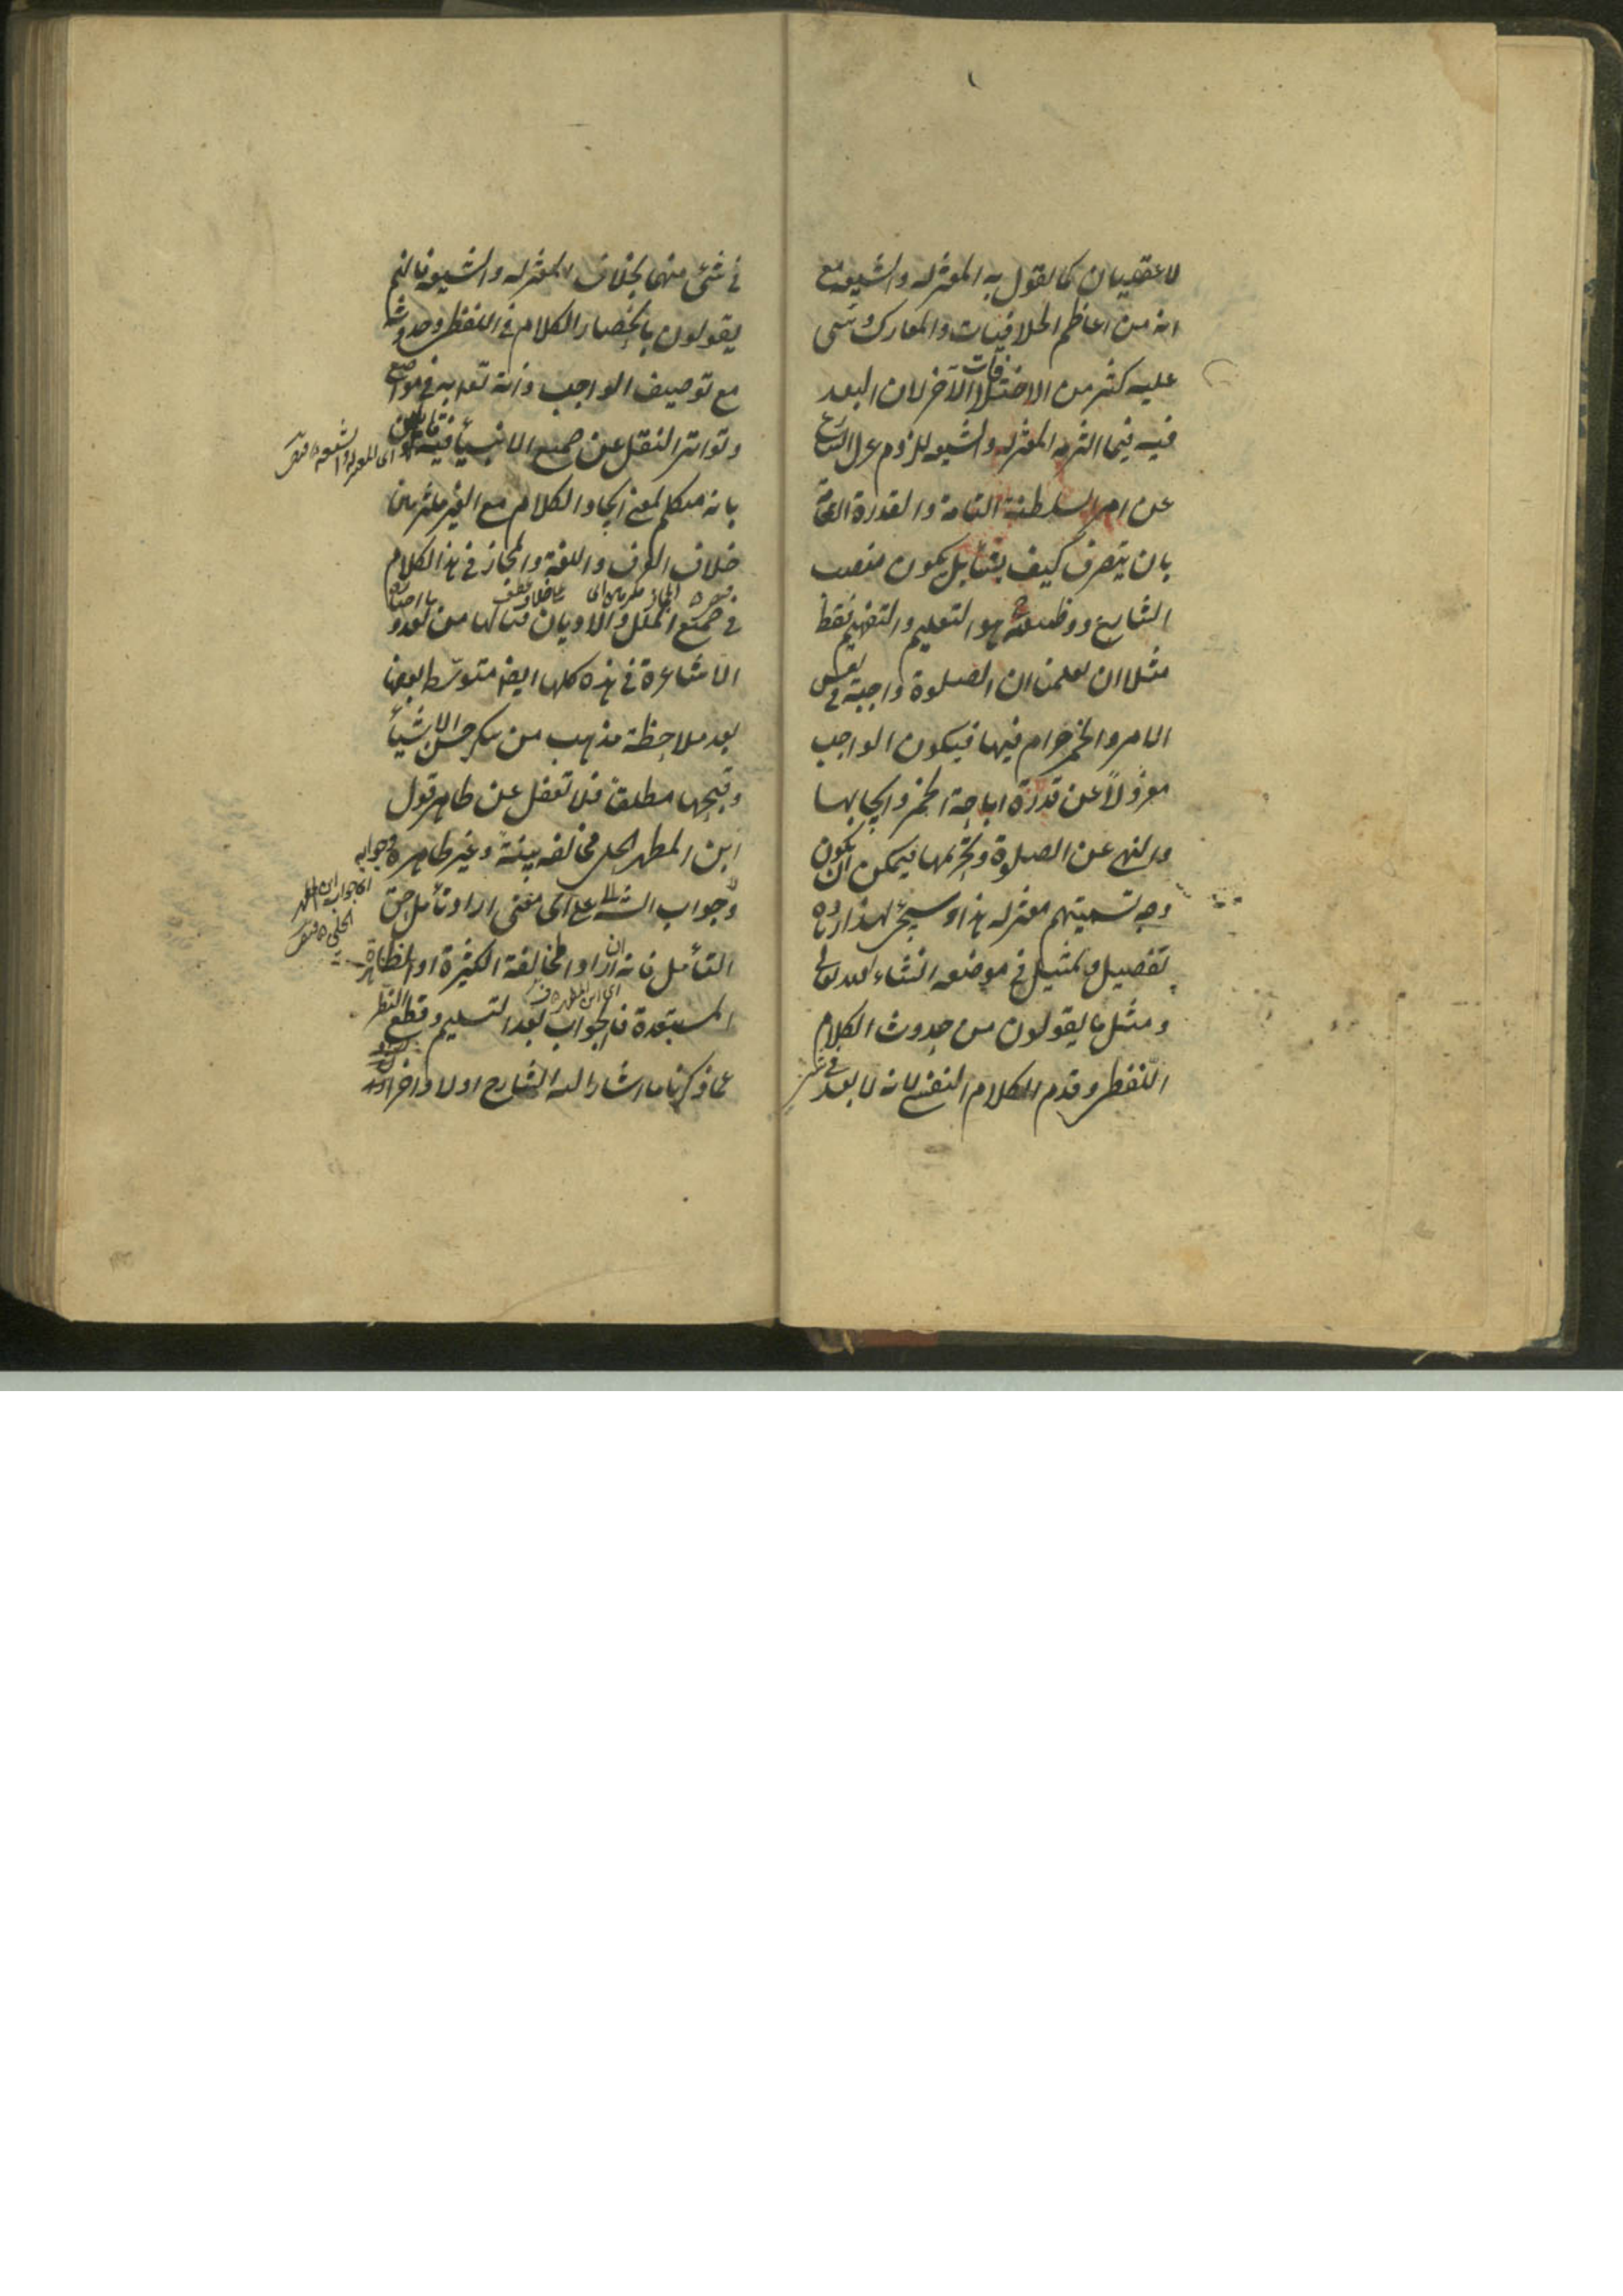 لا عقليان كما يقول به المعتزلة والشيعة مع
انه من اعاظم الخلافيات والمعارك وبنى
عليه كثير من الاختلافات الآخر لان البعد
فيه فيما التزمه المعتزلة والشيعة للزوم عزل الشارع
عن امر السلطنة التامة والقدرة العامة
بان يتصرف كيف يشاء بل يكون منصب
الشارع ووظيفته ح هو التعليم والتفهيم فقط
مثلا ان يعلمنا ان الصلوة واجبة في نفس
الامر والخمر حرام فيها فيكون الواجب
معزولاً عن قدرة اباحة الخمر وايجابها
والنهي عن الصلوة وتحريمها فيمكن ان يكون
وجه تسميتهم معتزلة هذا وسيجئ لهذا زيادة
تفصيل وتمثيل في موضعه انشاء الله تعالى
ومثل ما يقولون من حدوث الكلام
اللفظي وقدم الكلام النفسي لانه لا بعد
في شئ منهما بخلاف المعتزلة والشيعة فانهم
يقولون بانحصار الكلام في اللفظي وحدوثه
مع توصيف الواجب ذاته تعالى به في مواضع
وتواتر النقل عن جميع الانبياء فيه قائلين
اى المعتزلة والشيعة
بانه متكلم بمعنى ايجاد الكلام مع الغير ملتزمين
خلاف العرف واللغة والمجاز في هذا الكلام
في جميع الملل والاديان
الاشاعرة في هذه كلها ايضا متوسط بعضها
بعد ملاحظة مذهب من ينكر حسن الاشياء
وقبحها مطلقا فلا تغفل عن ظاهر قول
ابن المطهر الحلي مخالفه بينة وغير ظاهرة وجوابه
اى جواب ابن المطهر الحلي
وجواب الشارح على اى معنى اراد وتأمل حق
التأمل فانه ان اراد المخالفة الكثيرة او الظاهرة
اى ابن المطهر
المستبعدة فالجواب بعد التسليم وقطع النظر
عما ذكرنا ما اشار اليه الشارح اولا واخرا